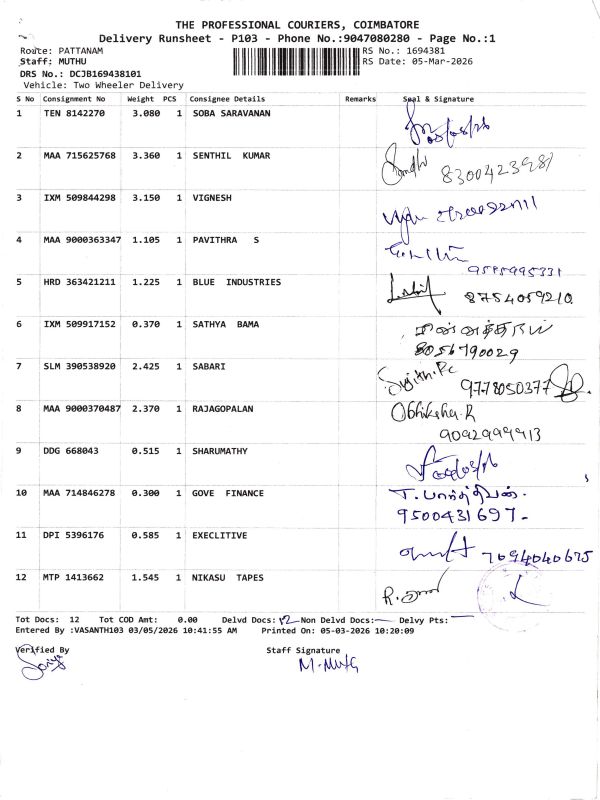 THE PROFESSIONAL COURIERS, COIMBATORE
Delivery Runsheet - P103 - Phone No.:9047080280 - Page No.:1
Route: PATTANAM
RS No.: 1694381
Staff: MUTHU
RS Date: 05-Mar-2026
DRS No.: DCJB169438101
Vehicle: Two Wheeler Delivery
S No Consignment No Weight PCS Consignee Details Remarks Seal & Signature
1 TEN 8142270 3.080 1 SOBA SARAVANAN
2 MAA 715625768 3.360 1 SENTHIL KUMAR
3 IXM 509844298 3.150 1 VIGNESH
4 MAA 9000363347 1.105 1 PAVITHRA S
9595995331
5 HRD 363421211 1.225 1 BLUE INDUSTRIES 8754059210
6 IXM 509917152 0.370 1 SATHYA BAMA
8056790029
7 SLM 390538920 2.425 1 SABARI 9778050377
8 MAA 9000370487 2.370 1 RAJAGOPALAN Obhiksha.R
9092999913
9 DDG 668043 0.515 1 SHARUMATHY
10 MAA 714846278 0.300 1 GOVE FINANCE T. பார்த்திபன்.
9500431697-
11 DPI 5396176 0.585 1 EXECLITIVE 7094040675
12 MTP 1413662 1.545 1 NIKASU TAPES
Tot Docs: 12 Tot COD Amt: 0.00 Delvd Docs: 12 Non Delvd Docs: Delvy Pts:
Entered By :VASANTH103 03/05/2026 10:41:55 AM Printed On: 05-03-2026 10:20:09
Verified By Staff Signature
M. Muthu